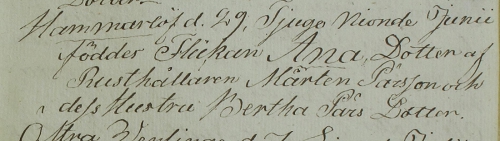 Hammarlöf d. 29, Tjugo Nionde Junii
föddes Flickan Ana, Dotter af
Rusthållaren Mårten Pärsson och
dess Hustru Bertha Pärs Dotter.
Östra